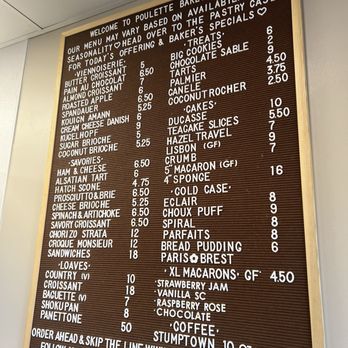 WELCOME TO POULETTE
OUR MENU MAY VARY BASED ON AVAILABILITY
SEASONALITY ♡ HEAD OVER TO THE PASTRY CASE
FOR TODAY'S OFFERING & BAKER'S SPECIALS ♡
·VIENNOISERIE·
BUTTER CROISSANT 5
PAIN AU CHOCOLAT 6.50
ALMOND CROISSANT 7
ROASTED APPLE 6.50
SPANDAUER 5.25
KOUIGN AMANN
CREAM CHEESE DANISH 6
KUGELHOPF 5
SUGAR BRIOCHE 5.25
COCONUT BRIOCHE
·SAVORIES·
HAM & CHEESE 6.50
ALSATIAN TART 6
HATCH SCONE 4.75
PROSCIUTTO&BRIE 6.50
CHEESE BRIOCHE 5.25
SPINACH & ARTICHOKE 6.50
SAVORY CROISSANT 6.50
CHORIZO STRATA 12
CROQUE MONSIEUR 12
SANDWICHES 18
·LOAVES·
COUNTRY (V) 10
CROISSANT 18
BAGUETTE (V)
SHOKIPAN
PANETTONE
50
·TREATS·
BIG COOKIES
CHOCOLATE SABLE
TARTS
PALMIER
CANELE
COCONUT ROCHER
·CAKES·
DUCASSE
TEACAKE SLICES
HAZEL TRAVEL
LISBON (GF)
CRUMB
5" MACARON (GF)
4" SPONGE 16
·COLD CASE·
ECLAIR 8
CHOUX PUFF 9
SPIRAL 8
PARFAITS 8
BREAD PUDDING 6
PARIS BREST
·XL MACARONS· GF 4.50
STRAWBERRY JAM
VANILLA SC
RASPBERRY ROSE
CHOCOLATE
·COFFEE·
STUMPTOWN
ORDER AHEAD & SKIP THE LINE